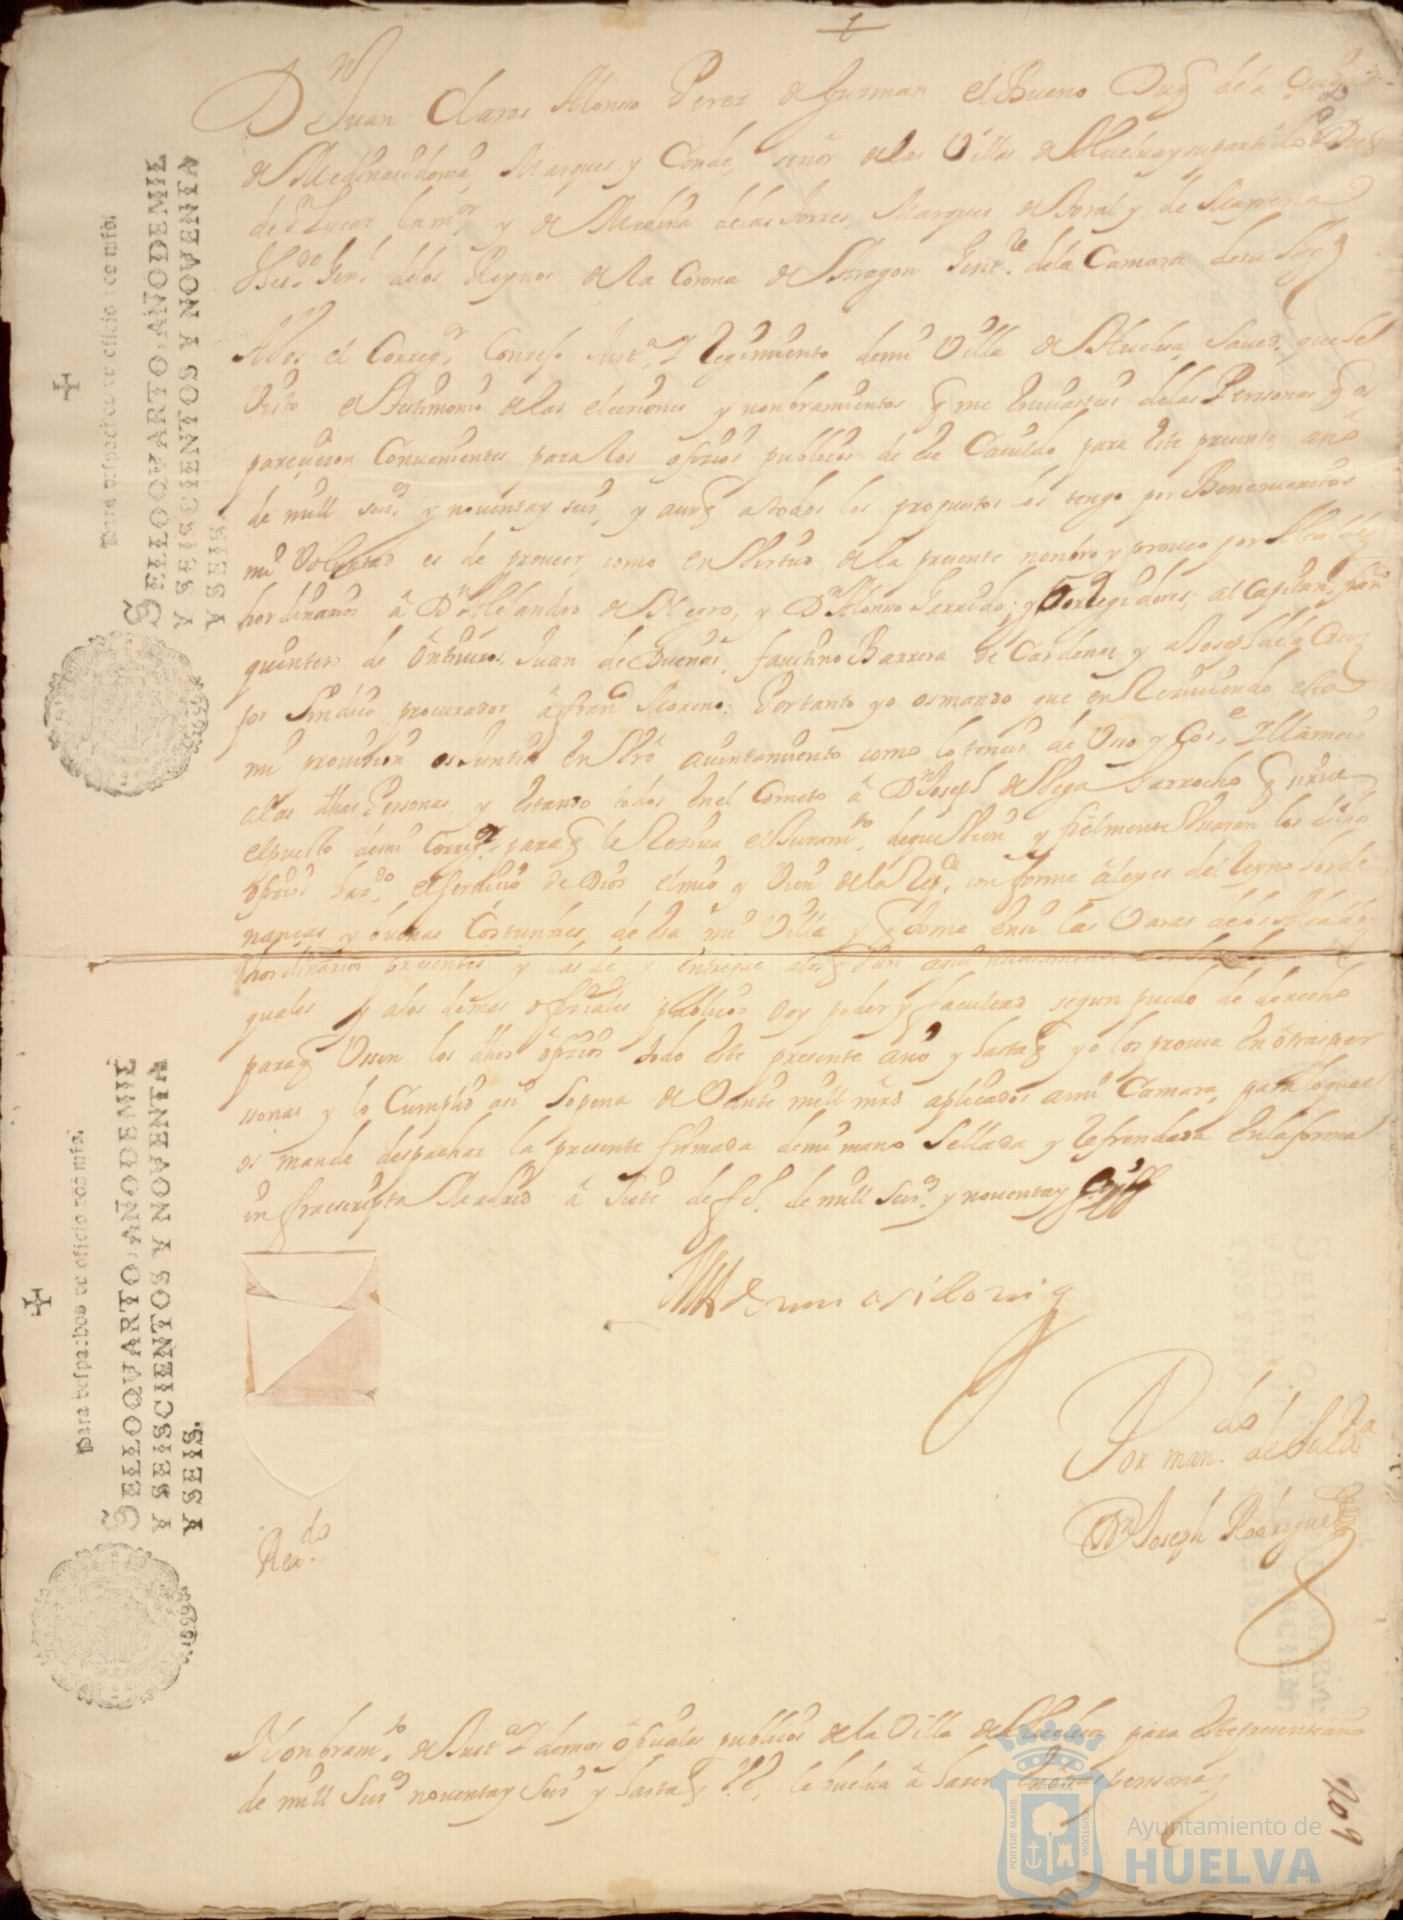 Dn Juan Claros Alonso Perez de Guzman el Bueno Duq de la Ciudad
de Medinasidonia, Marques y Conde, señor de las Villas de Huelva y
de Sn Lucar la mr y de Medina de las torres, Marques de Toral y de Mayrena
Thesro Genl de los Reynos de la Corona de Aragon Gentle de la Camara de su Magd
A Vos el Corregr Consejo Justa Y Regimiento de mi Villa de Huelva, Saved, que e
Visto el testimonio de las elecsiones y nonbramientos q me enviasteis de las Perssonas q os
pareçieron Convenientes para los ofizios publicos de ese Cavildo para este presente año
de mill seisos y noventa y seis, y aunq a todos los propuestos los tengo por Benemeritos
mi Voluntad es de proveer, como en Virtud de la presente nonbro y proveo por Alcaldes
hordinarios â Dn Alejandro de Negro, y Dn Alonso Garrido; y por Regidores, al Capitan
quintero de Ontiveros, Juan de Dueñas, faustino Barrera de Cardenas y a Joseph de la Cruz
por Sindico procurador â franco Moreno: Por tanto yo os mando que en Reciviendo esta
mi provision os Junteis en Vro aiuntamiento como lo teneis de Vsso y Cose, Y llameis
a las dhas Personas, y estando todos en el Cometo â Dn Joseph de Vega Garrocho q sirve
el puesto de mi Corregr para q le Reziva el Juramto de que Vien y fielmente Vsaran los dichos
ofizios haxdo el serviçio de Dios el mio y Vien de la Repca conforme â leyes del Reyno horde
nanças y buenas Costunbres, de esa mi Villa y q tome en si las Varas de los Alcaldes
hordinarios presentes y las de y entregue a los q Van aqui
quales y a los demas ofiziales publicos doy poder y facultad segun puedo de derecho
para q Vssen los dhos ofizios todo este presente año y hasta q yo los provea en otras per
ssonas y lo Cumplid asi so pena de Veinte mill mrs aplicados a mi Camara, para lo qual
os mande despachar la presente firmada de mi mano sellada y Refrendada en la forma
infraescripta Madrid â siete de feo de mill seisos y noventa y seis
Medinasidonia
Por mando de
Dn Joseph Rodriguez
Rexdo
Nonbramto de Justa Y demas ofiziales publicos de la Villa de Huelva para este presente año
de mill seisos noventa y seis y hasta q V.E. le buelva â hazer en otras personas
Para despachos de oficio dos mrs.
SELLO QVARTO, AÑO DE MIL
Y SEISCIENTOS Y NOVENTA
Y SEIS.
Para despachos de oficio dos mrs.
SELLO QVARTO, AÑO DE MIL
Y SEISCIENTOS Y NOVENTA
Y SEIS.
PORTUS MARIS
ET TERRÆ
CUSTODIA
Ayuntamiento de
HUELVA